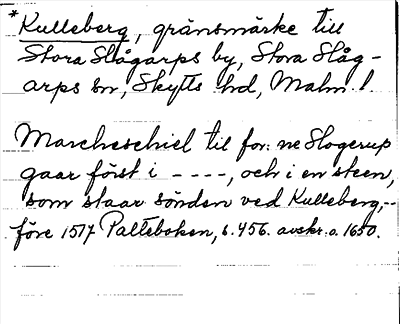 *Kulleberg, gränsmärke till
Stora Slågarps by, Stora Slåg-
arps sn, Skytts hd, Malm. l.
Marcheschiel til for: ne Slogerup
gaar först i ----, och i en steen,
som staar sönden ved Kulleberg,--
före 1517 Palteboken, s. 456. avskr. o. 1650.